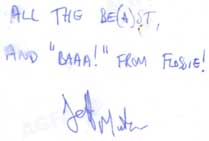 ALL THE BE(A)ST,
AND "BAAA!" FROM FLOSSIE!
Jeff